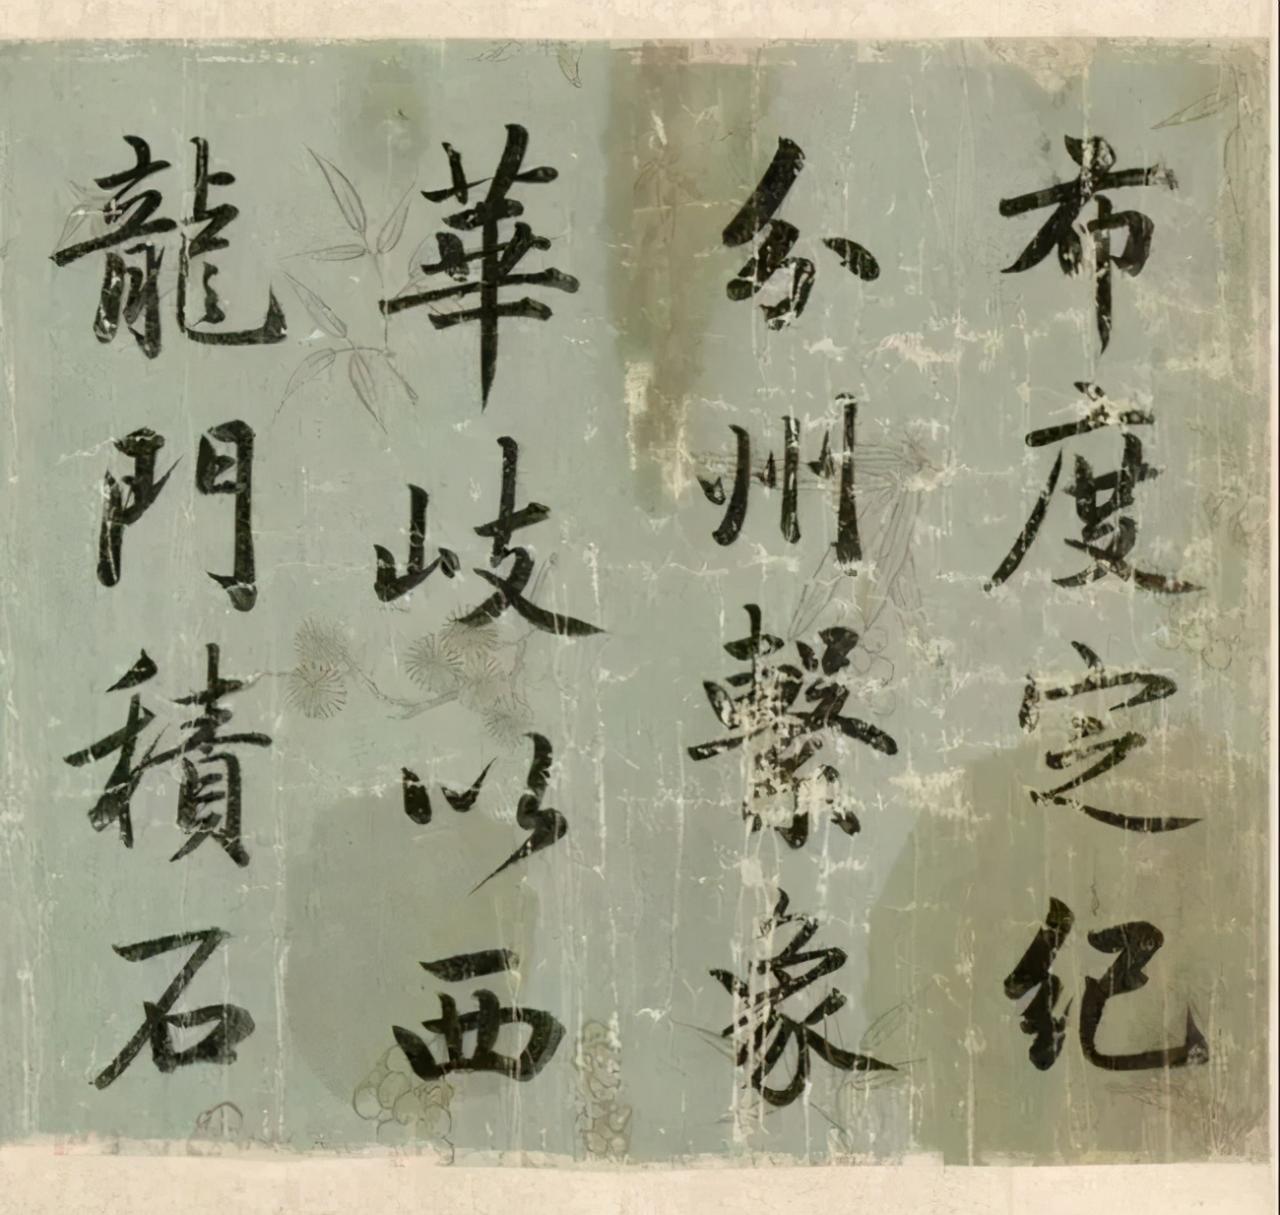 布度定纪
分州繫象
華歧以西
龍門積石